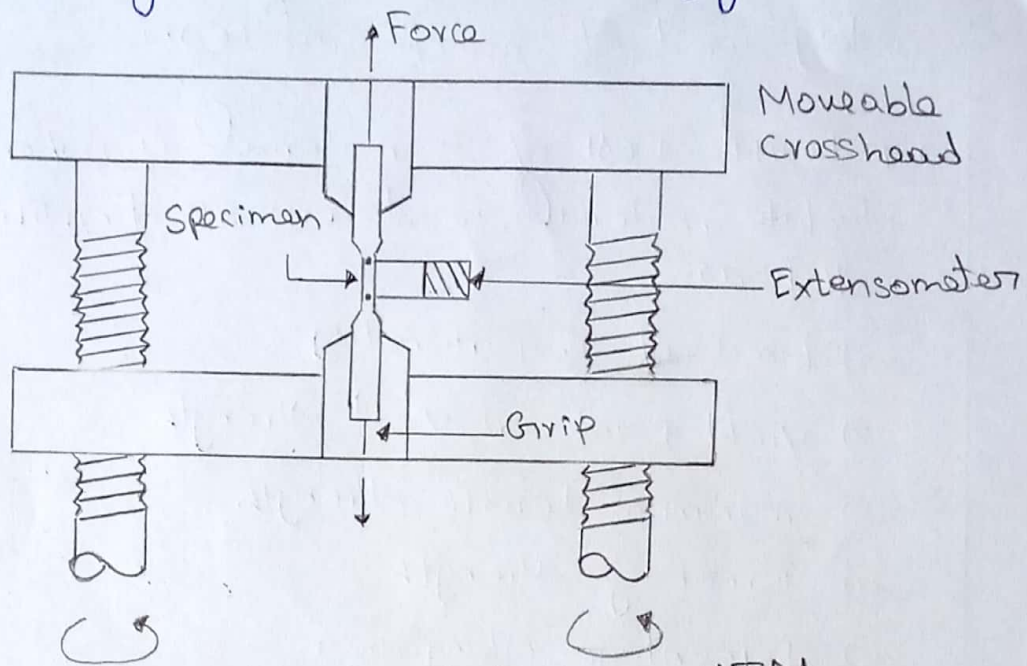 Force
Moveable
Crosshead
Specimen
Extensometer
Grip